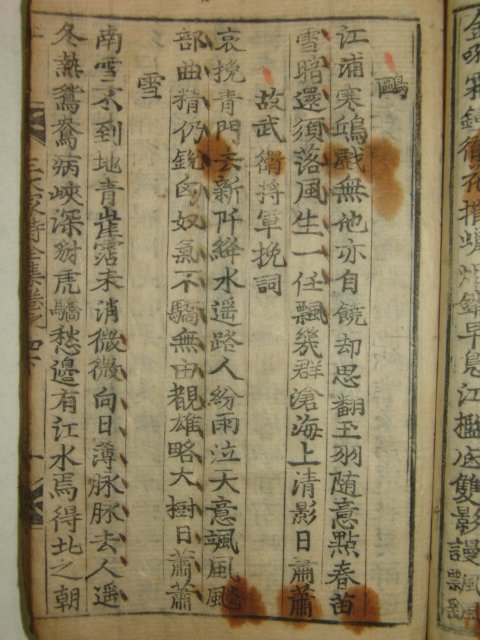 金吼霜鍾徹花催蠟炬銷早鳧江檻底雙影謾
鷗
江浦寒鷗戲無他亦自饒却思翻玉羽随意點春苗
雪暗還須落風生一任飄幾群滄海上清影日蕭蕭
故武衛將軍挽詞
哀挽青門去新阡絳水遥路人紛雨泣天意颯風飈
部曲精仍銳匈奴氣不驕無由覩雄略大樹日蕭蕭
雪
南雪不到地青崖露未消微微向日薄脉脉去人遥
冬熱鴛鴦病峽深豺虎驕愁邊有江水焉得北之朝